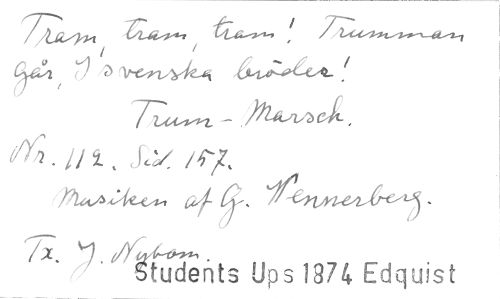 Tram, tram, tram! Trumman
går, I svenska bröder!
Trum-Marsch.
Nr. 112. Sid. 157.
Musiken af G. Wennerberg.
Tx. J. Nybom.
Students Ups 1874 Edquist